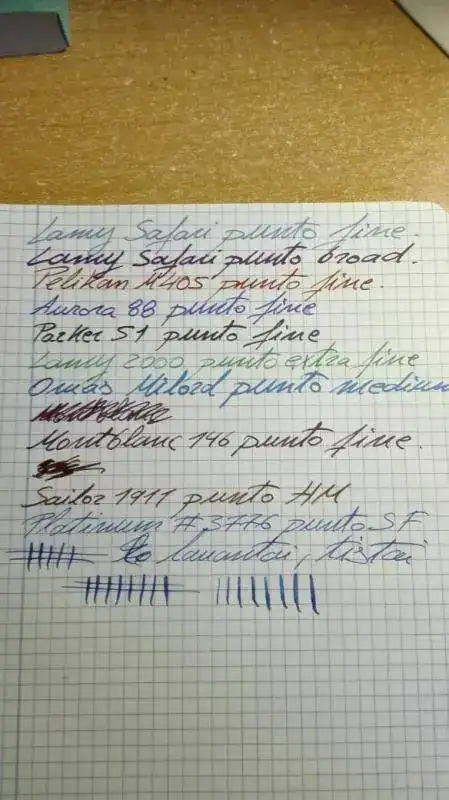 Lamy Safari punto fine.
Lamy Safari punto broad.
Pelikan M405 punto fine.
Aurora 88 punto fine
Parker 51 punto fine
Lamy 2000 punto extra fine
Omas Milord punto medium
Montblanc 146 punto fine.
Sailor 1911 punto HM
Platinum #3776 punto SF